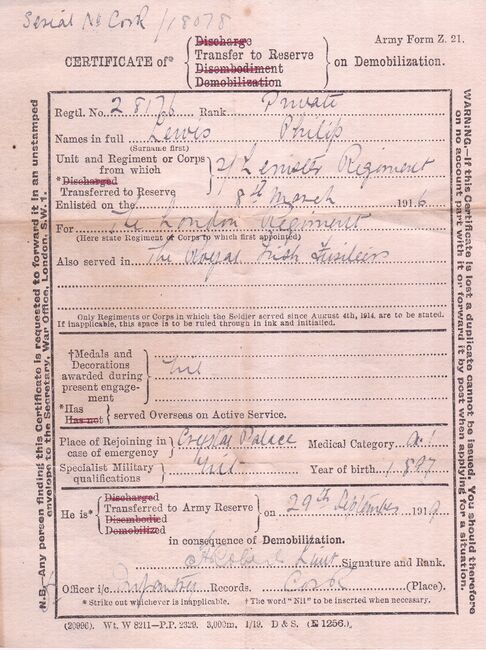 Serial No Cork/18078
Army Form Z. 21.
CERTIFICATE of*
Discharge
Transfer to Reserve
Disembodiment
Demobilization
on Demobilization.
Regtl. No. 28176 Rank Private
Names in full Lewis Philip
(Surname first)
Unit and Regiment or Corps
from which
*Discharged
Transferred to Reserve
2/ Leinster Regiment
Enlisted on the 8th March 1916
For The London Regiment
(Here state Regiment or Corps to which first appointed)
Also served in The Royal Irish Fusiliers
Only Regiments or Corps in which the Soldier served since August 4th, 1914, are to be stated.
If inapplicable, this space is to be ruled through in ink and initialled.
†Medals and
Decorations
awarded during
present engage-
ment
Nil
*Has
Has not
served Overseas on Active Service.
Place of Rejoining in
case of emergency
Crystal Palace
Medical Category A 1
Specialist Military
qualifications
Nil
Year of birth 1897
He is*
Discharged
Transferred to Army Reserve
Disembodied
Demobilized
on 29th September 1919
in consequence of Demobilization.
Signature and Rank.
Officer i/c Infantry Records. Cork (Place).
* Strike out whichever is inapplicable. † The word "Nil" to be inserted when necessary.
(20996). Wt. W 8211—P.P. 2329. 3,000m. 1/19. D & S. (E 1256.)
N.B. Any person finding this Certificate is requested to forward it in an unstamped
envelope to the Secretary, War Office, London, S.W. 1.
WARNING.—If this Certificate is lost a duplicate cannot be issued. You should therefore
on no account part with it or forward it by post when applying for a situation.